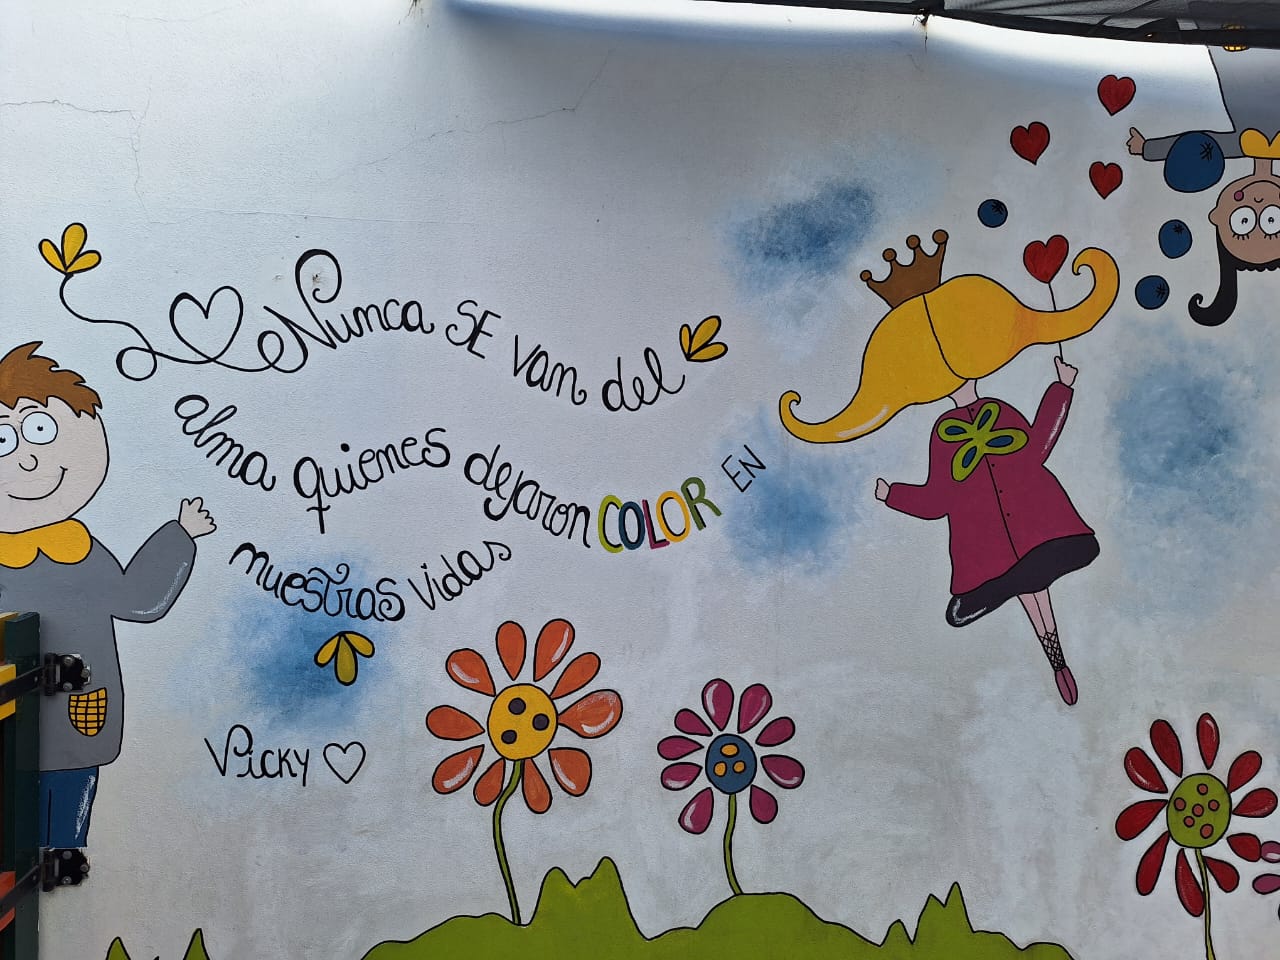 Nunca SE van del
alma quienes dejaron COLOR EN
muestras vidas
Vicky